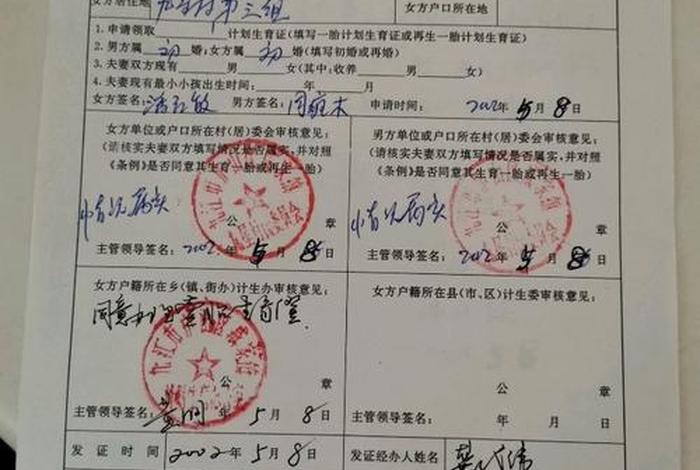 女方居住地 第三组 女方户口所在地
1.申请领取 计划生育证(填写一胎计划生育证或再生一胎计划生育证)
2.男方属 初 婚;女方属 初 婚(填写初婚或再婚)
3.夫妻双方现有 男 女(其中:收养 男 女)
4.夫妻现有最小小孩出生时间: 年 月
女方签名: 男方签名: 申请时间: 2002年5月8日
女方单位或户口所在村(居)委会审核意见:
(请核实夫妻双方填写情况是否属实,并对照
《条例》是否同意其生育一胎或再生一胎)
情况属实
公 章
主管领导签名: 2002年5月8日
男方单位或户口所在村(居)委会审核意见:
(请核实夫妻双方填写情况是否属实,并对照
《条例》是否同意其生育一胎或再生一胎)
情况属实
公 章
主管领导签名: 2002年5月8日
女方户籍所在乡(镇、街办)计生办审核意见:
同意办理 生育证
九江市
公 章
主管领导签名: 年5月8日
女方户籍所在县(市、区)计生委审核意见:
公 章
主管领导签名: 年 月 日
发证时间 2002年5月8日 发证经办人姓名